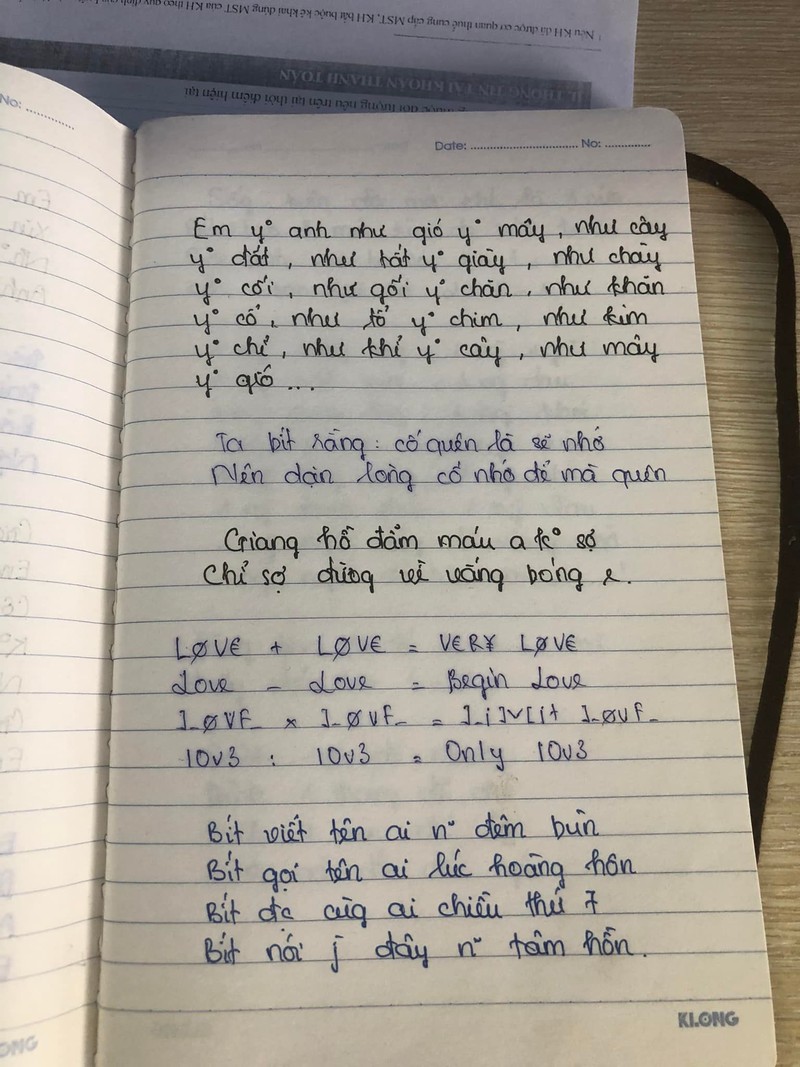 ¹ Nếu KH đã được cơ quan thuế cung cấp MST, KH bắt buộc kê khai đúng MST của KH theo quy định
II. THÔNG TIN TÀI KHOẢN THANH TOÁN
đối tượng nêu trên tại thời điểm hiện tại
No: ..............
Date: .................................. No: ..............
Em y° anh như gió y° mây, như cây
y° đất, như tất y° giày, như chày
y° cối, như gối y° chăn, như khăn
y° cổ, như tổ y° chim, như kim
y° chỉ, như khỉ y° cây, như mây
y° gió ...
Ta bít rằng: cố quên là sẽ nhớ
Nên dặn lòng cố nhớ để mà quên
Giang hồ đẫm máu a k° sợ
Chỉ sợ đường về vắng bóng e.
LØV€ + LØV€ = V€R¥ LØV€
Love - Love = Begin Love
]_ØVF_ x ]_ØVF_ = ]_i]v[i+ ]_ØVF_
10v3 : 10v3 = Only 10v3
Bít viết tên ai n~ đêm bùn
Bít gọi tên ai lúc hoàng hôn
Bít đc cùg ai chiều thứ 7
Bít nói j đây n~ tâm hồn.
KLONG